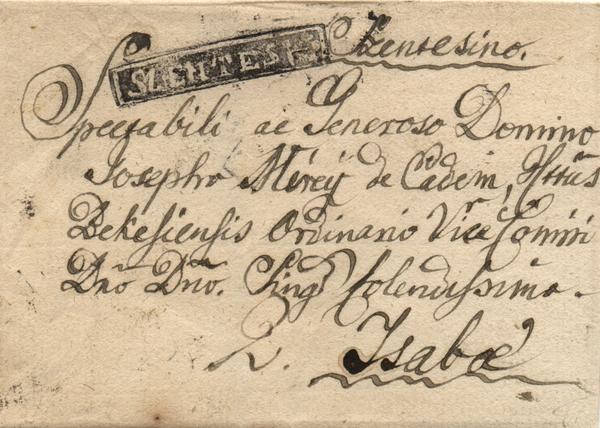 SZENTES
Szentesino.
Spectabili ac Generoso Domino
Josepho Mérey de Eadem, Ittus
Bekesiensis Ordinario Vice Comiti
Dno Dno. Singr Colendissimo.
Isabæ